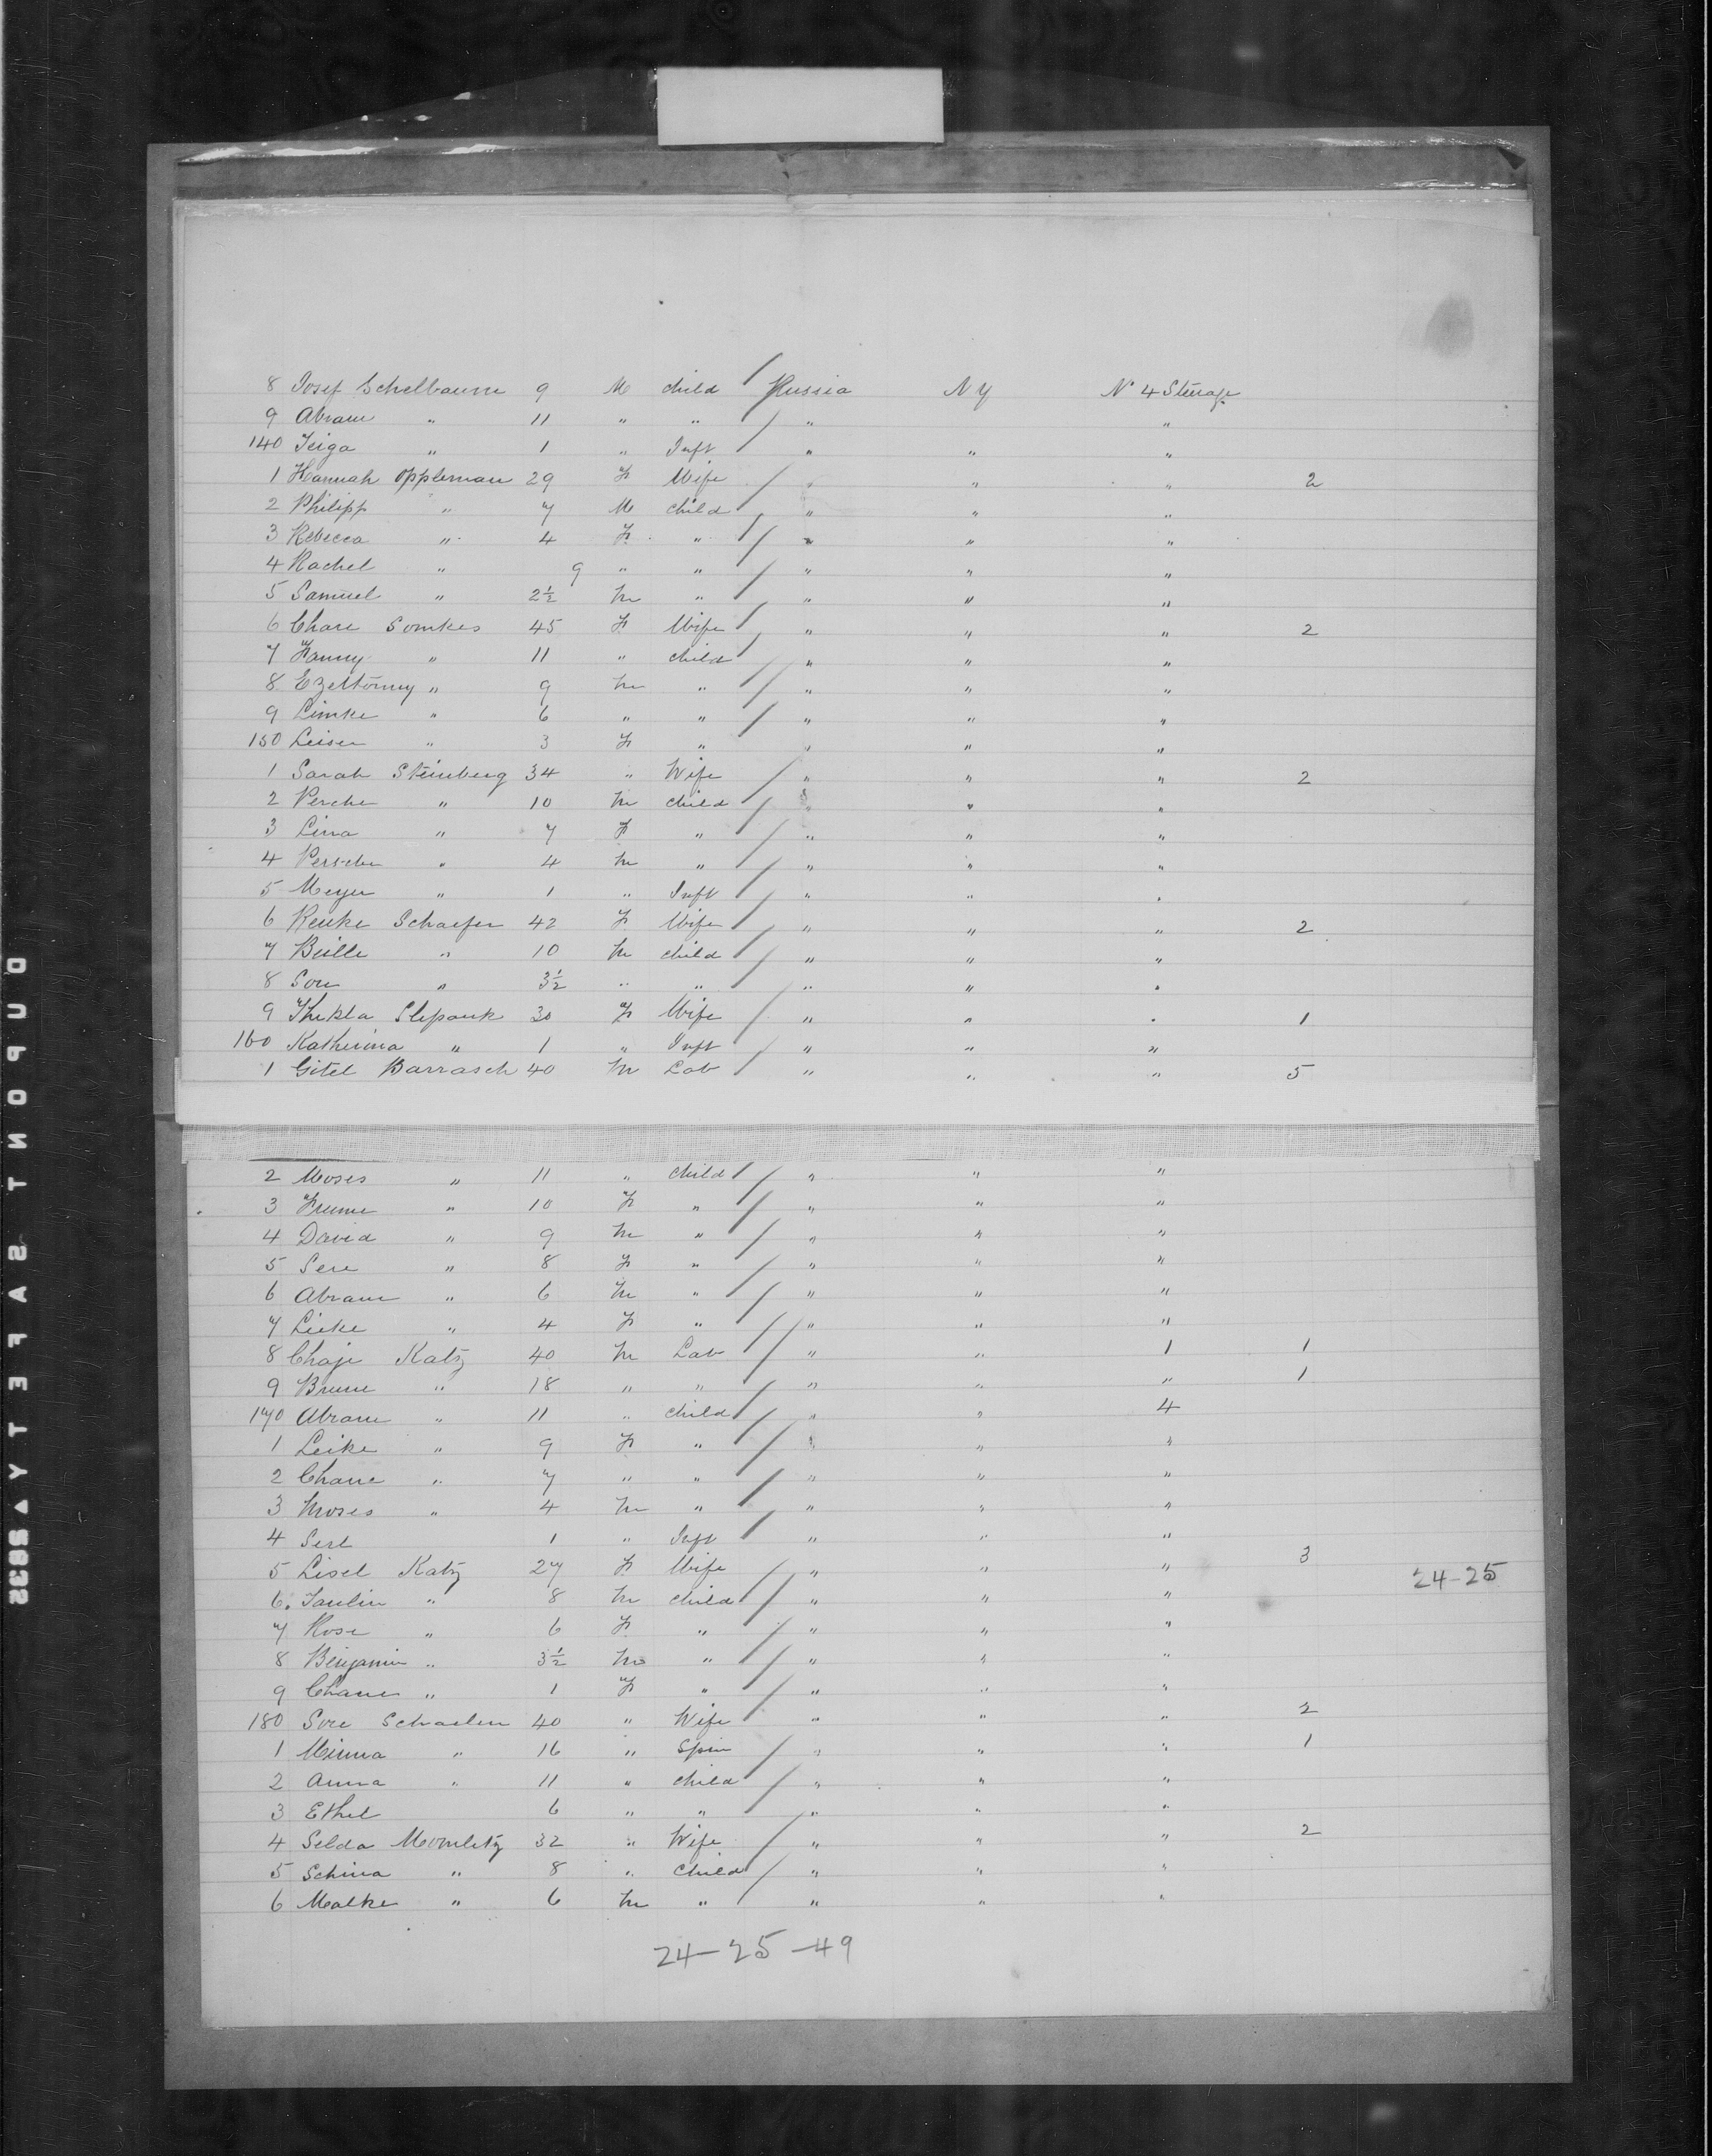 8 Josef Schelbaum 9 M child / Russia N Y N 4 Steerage
9 Abram " 11 " " / " "
140 Teiga " 1 " Inft / " " "
1 Hannah Oppleman 29 F Wife / " " " 2
2 Philipp " 7 M child / " " "
3 Rebecca " 4 F " / " " "
4 Rachel " 9 " " / " " "
5 Samuel " 2½ M " / " " "
6 Chare Somkes 45 F Wife / " " " 2
7 Fanny " 11 " child / " " "
8 " 9 M " / " " "
9 Limke " 6 " " / " " "
150 Leiser " 3 F " " " "
1 Sarah Steinberg 34 " Wife / " " " 2
2 Perche " 10 M child / " " "
3 Lina " 7 F " / " " "
4 Persche " 4 M " / " " "
5 Meyer " 1 " Inft / " " "
6 Renke Schaefer 42 F Wife / " " " 2
7 Beille " 10 M child / " " "
8 Sore " 3½ " " " " "
9 Thekla Slepauk 30 F Wife / " " " 1
160 Katherina " 1 " Inft / " " "
1 Gitel Barrasch 40 M Lab / " " " 5
2 Moses " 11 " child / " " "
3 Frume " 10 F " / " " "
4 David " 9 M " / " " "
5 Sere " 8 F " / " " "
6 Abram " 6 M " / " " "
7 Lieke " 4 F " / " " "
8 Chaje Katz 40 M Lab / " " 1 1
9 Brume " 18 " " / " " " 1
170 Abram " 11 " child / " " 4
1 Leike " 9 F " / " " "
2 Chane " 7 " " / " " "
3 Moses " 4 M " / " " "
4 Serl 1 " Inft / " " "
5 Lisel Katz 27 F Wife / " " " 3
24-25
6. " 8 M child / " " "
7 Rose " 6 F " / " " "
8 Benjamin " 3½ M " / " " "
9 Chane " 1 F " / " " "
180 Sore 40 " Wife / " " " 2
1 Minna " 16 " Spin / " " " 1
2 Anna " 11 " child / " " "
3 Ethel 6 " " / " " "
4 Selda 32 " Wife / " " " 2
5 Schina " 8 " child / " " "
6 Malke " 6 M " / " " "
24-25-49
DUPONT SAFETY